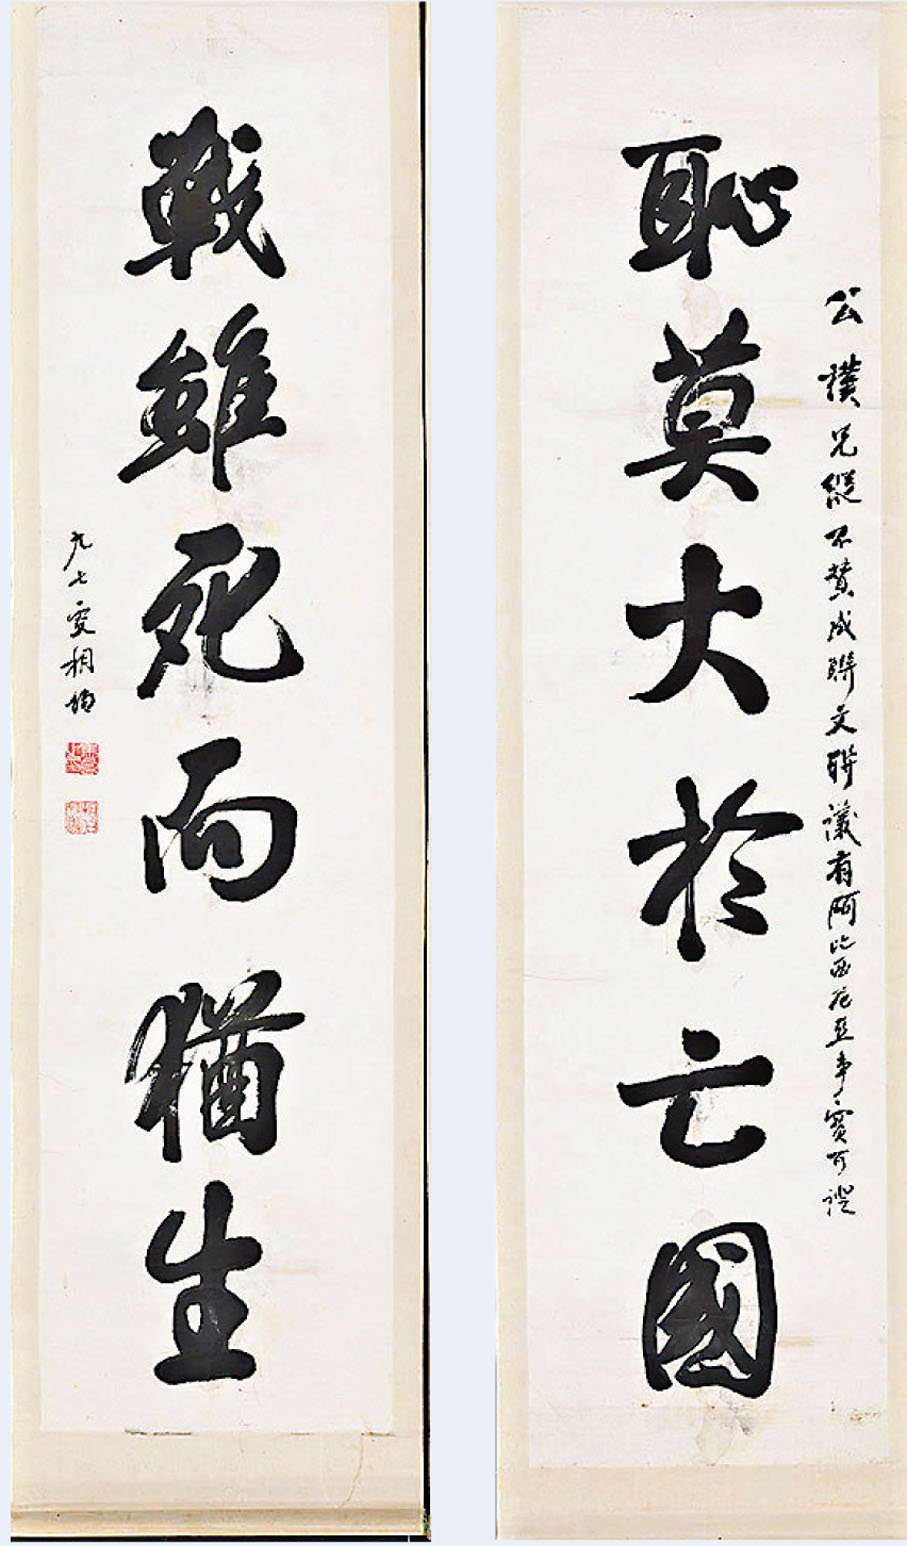 公樸兄縱不贊成聯文聯議有阿比西尼亞事實可證
恥莫大於亡國
戰雖死而猶生
九七叟相伯